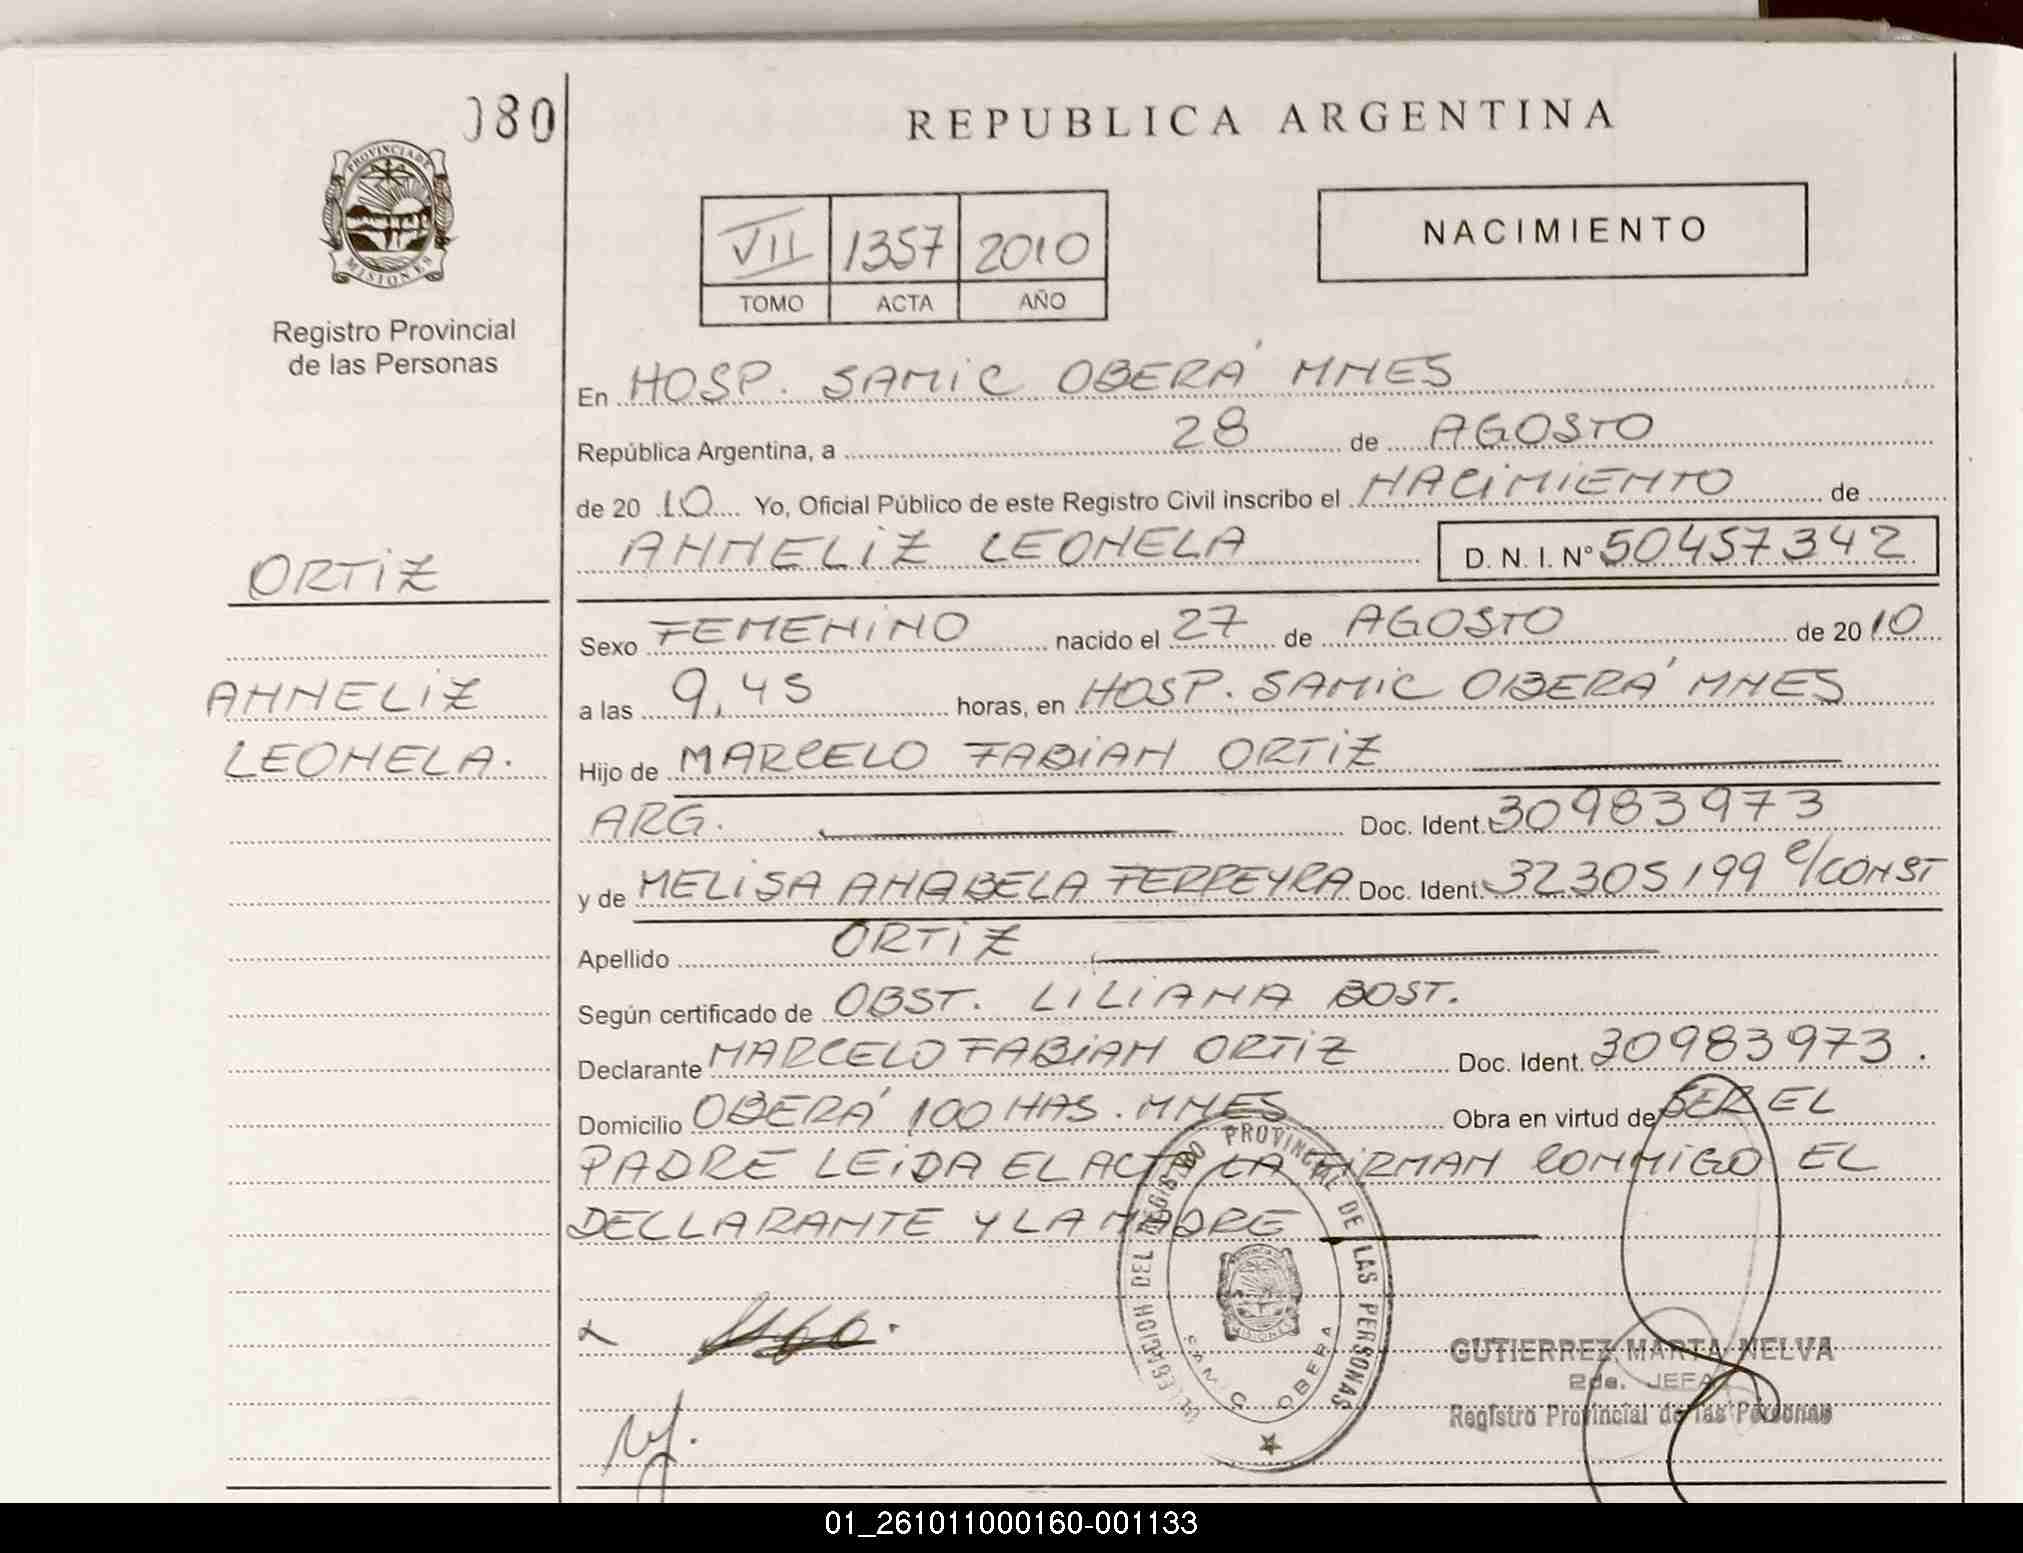 080
REPUBLICA ARGENTINA
PROVINCIA DE
MISIONES
Registro Provincial
de las Personas
VII 1357 2010
TOMO ACTA AÑO
NACIMIENTO
En HOSP. SAMIC OBERÁ MNES
República Argentina, a 28 de AGOSTO
de 2010 Yo, Oficial Público de este Registro Civil inscribo el NACIMIENTO de
ANNELIZ LEONELA D. N. I. Nº 50457342
ORTIZ
ANNELIZ
LEONELA.
Sexo FEMENINO nacido el 27 de AGOSTO de 2010
a las 9,45 horas, en HOSP. SAMIC OBERÁ MNES
Hijo de MARCELO FABIAN ORTIZ
ARG. Doc. Ident. 30983973
y de MELISA ANABELA FERREYRA Doc. Ident. 32305199 C/CONST
Apellido ORTIZ
Según certificado de OBST. LILIANA BOST.
Declarante MARCELO FABIAN ORTIZ Doc. Ident. 30983973.
Domicilio OBERÁ 100 HAS. MNES Obra en virtud de SER EL
PADRE LEIDA EL ACTA LA FIRMAN CONMIGO EL
DECLARANTE Y LA MADRE
DELEGACION DEL REGISTRO PROVINCIAL DE LAS PERSONAS
SAMIC OBERA
MISIONES
GUTIERREZ MARTA NELVA
2da. JEFA
Registro Provincial de las Personas
01_261011000160-001133